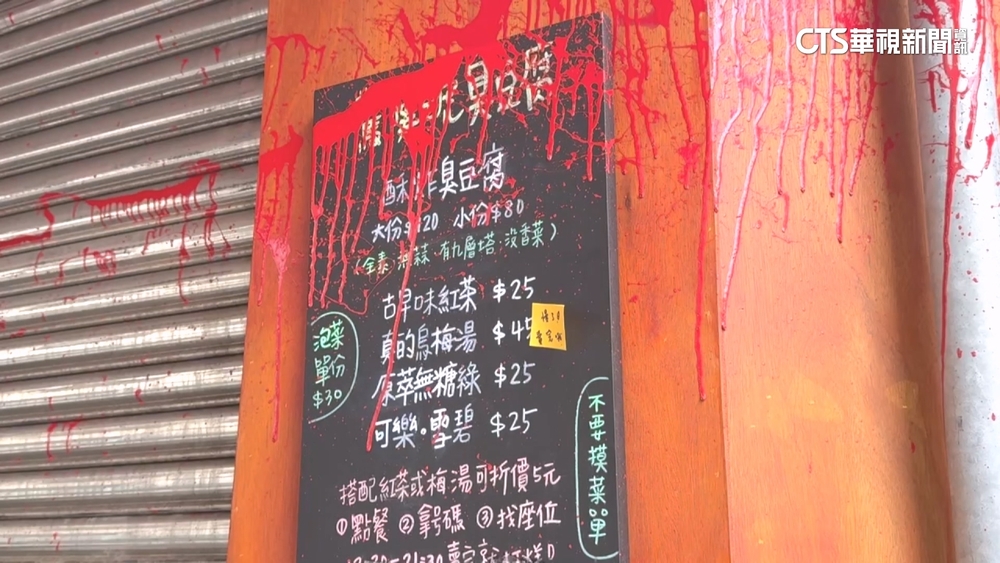 CTS華視新聞資訊
臭豆腐
酥炸臭豆腐
大份$120 小份$80
(全素 蒜 有九層塔 沒香菜)
古早味紅茶 $25
真的烏梅湯 $45
原萃無糖綠 $25
可樂.雪碧 $25
泡菜
單份
$30
不要摸菜單
搭配紅茶或梅湯可折價5元
①點餐 ②拿號碼 ③找座位